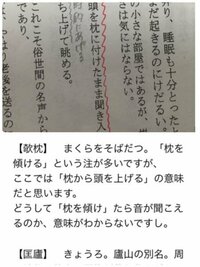 り、睡眠も十分とったと
まだ起きるのにけだるい。
の小さな部屋ではあるが、
さは気にはならない。
頭を枕に付けたまま聞き入
ち上げて眺める。
これこそ俗世間の名声から
であり、
、やはり老後を送るの
【欹枕】　まくらをそばだつ。「枕を
傾ける」という注が多いですが、
ここでは「枕から頭を上げる」の意味
だと思います。
どうして「枕を傾け」たら音が聞こえ
るのか、意味がわからないですし。
【匡廬】　きょうろ。廬山の別名。周